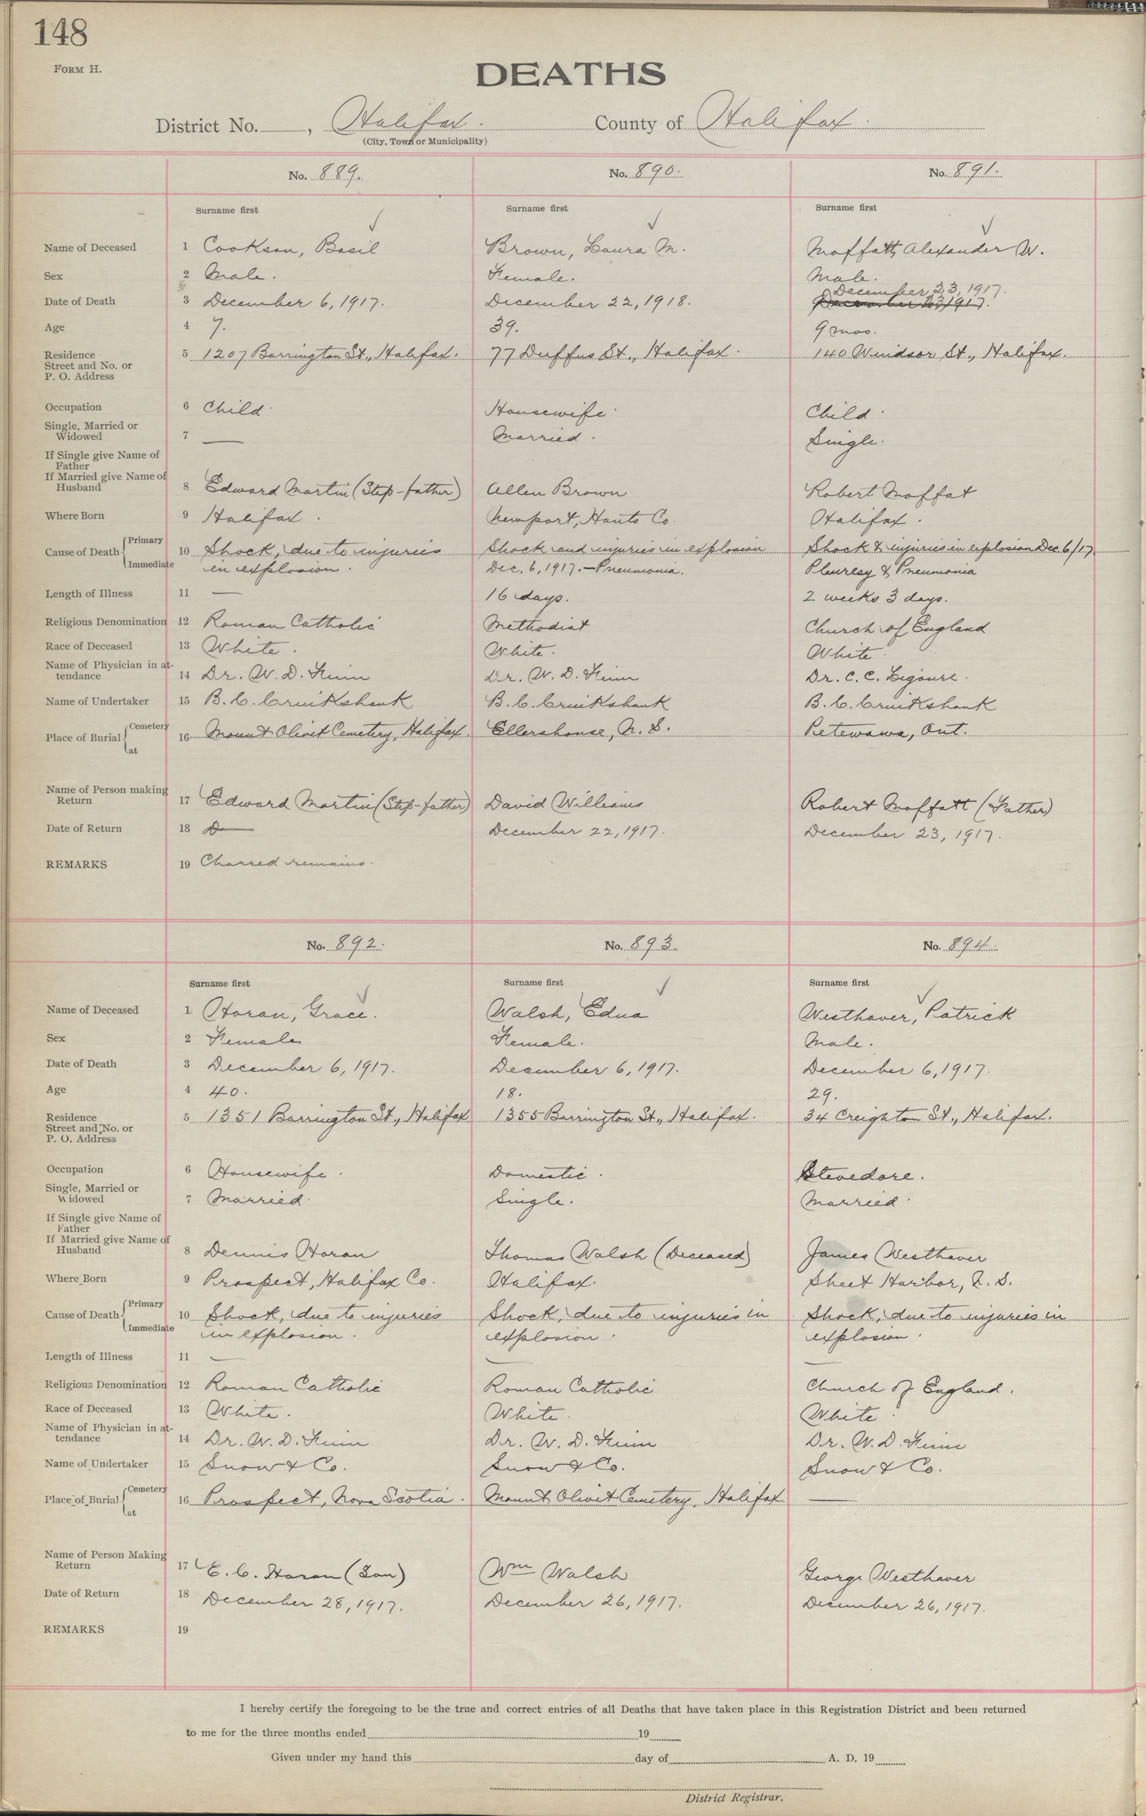 148
FORM H.
DEATHS
District No. , Halifax. County of Halifax.
(City, Town or Municipality)
No. 889. No. 890. No. 891.
Surname first Surname first Surname first
Name of Deceased 1 Cookson, Basil Brown, Laura M. Moffatt, Alexander W.
Sex 2 Male. Female. Male.
December 23, 1917.
Date of Death 3 December 6, 1917. December 22, 1918. December 23, 1917.
Age 4 7. 39. 9 mos.
Residence 5 1207 Barrington St., Halifax. 77 Duffus St., Halifax. 140 Windsor St., Halifax.
Street and No. or
P. O. Address
Occupation 6 Child. Housewife. Child.
Single, Married or
Widowed 7 — Married. Single.
If Single give Name of
Father
If Married give Name of
Husband 8 Edward Martin (Step-father) Allen Brown Robert Moffat
Where Born 9 Halifax. Newport, Hants Co. Halifax.
Primary
Cause of Death 10 Shock, due to injuries Shock and injuries in explosion Shock & injuries in explosion Dec. 6/17.
Immediate in explosion. Dec. 6, 1917. — Pneumonia. Pleuresy & Pneumonia
Length of Illness 11 — 16 days. 2 weeks 3 days.
Religious Denomination 12 Roman Catholic Methodist Church of England
Race of Deceased 13 White. White. White.
Name of Physician in at-
tendance 14 Dr. W. D. Finn Dr. W. D. Finn Dr. C. C. Ligoure.
Name of Undertaker 15 B. C. Cruikshank B. C. Cruikshank B. C. Cruikshank
Cemetery
Place of Burial 16 Mount Olivit Cemetery, Halifax. Ellershouse, N. S. Petewawa, Ont.
at
Name of Person making
Return 17 Edward Martin (Step-father) David Williams Robert Moffatt (Father)
Date of Return 18 D— December 22, 1917. December 23, 1917.
REMARKS 19 Charred remains.
No. 892. No. 893. No. 894.
Surname first Surname first Surname first
Name of Deceased 1 Horan, Grace. Walsh, Edna Westhaver, Patrick
Sex 2 Female Female. Male.
Date of Death 3 December 6, 1917. December 6, 1917. December 6, 1917.
Age 4 40. 18. 29.
Residence 5 1351 Barrington St., Halifax 1355 Barrington St., Halifax. 34 Creighton St., Halifax.
Street and No. or
P. O. Address
Occupation 6 Housewife. Domestic. Stevedore.
Single, Married or
Widowed 7 Married. Single. Married.
If Single give Name of
Father
If Married give Name of
Husband 8 Dennis Horan Thomas Walsh (Deceased) James Westhaver
Where Born 9 Prospect, Halifax Co. Halifax. Sheet Harbor, N. S.
Primary
Cause of Death 10 Shock, due to injuries Shock, due to injuries in Shock, due to injuries in
Immediate in explosion. explosion. explosion.
Length of Illness 11 — — —
Religious Denomination 12 Roman Catholic Roman Catholic Church of England.
Race of Deceased 13 White. White. White.
Name of Physician in at-
tendance 14 Dr. W. D. Finn Dr. W. D. Finn Dr. W. D. Finn
Name of Undertaker 15 Snow & Co. Snow & Co. Snow & Co.
Cemetery
Place of Burial 16 Prospect, Nova Scotia. Mount Olivit Cemetery, Halifax —
at
Name of Person Making
Return 17 E. C. Horan (Son) Wm Walsh George Westhaver
Date of Return 18 December 28, 1917. December 26, 1917. December 26, 1917.
REMARKS 19
I hereby certify the foregoing to be the true and correct entries of all Deaths that have taken place in this Registration District and been returned
to me for the three months ended 19
Given under my hand this day of A. D. 19
District Registrar.